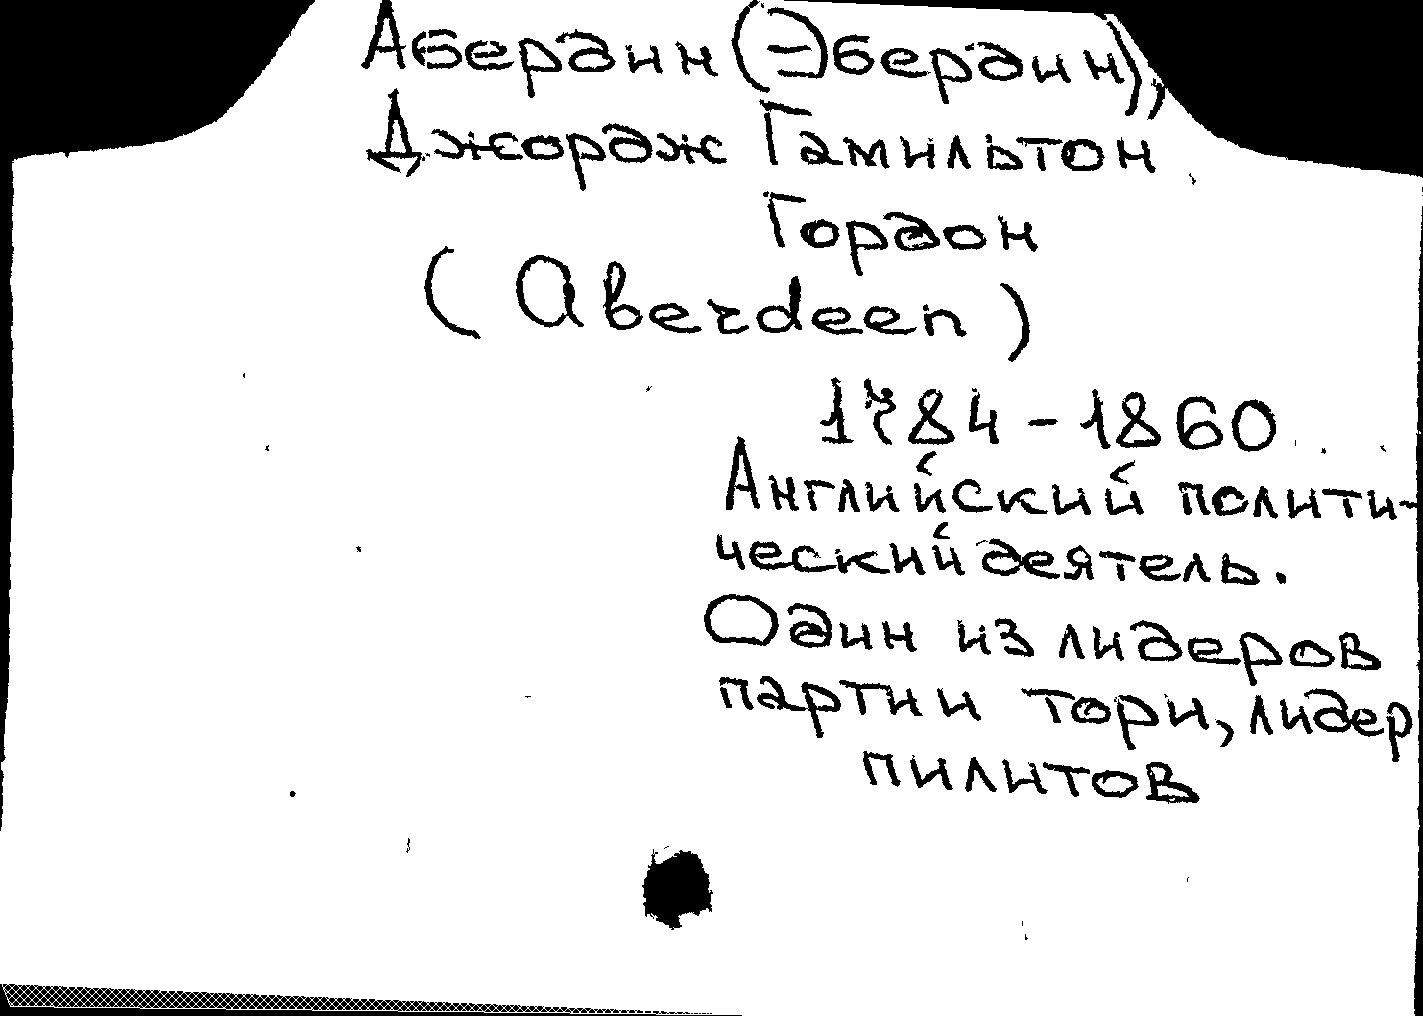 Абердин (Эбердин),
Джордж Гамильтон
Гордон
(Aberdeen)
1784-1860
Английский полити-
ческий деятель.
Один из лидеров
партии тори, лидер
пилитов